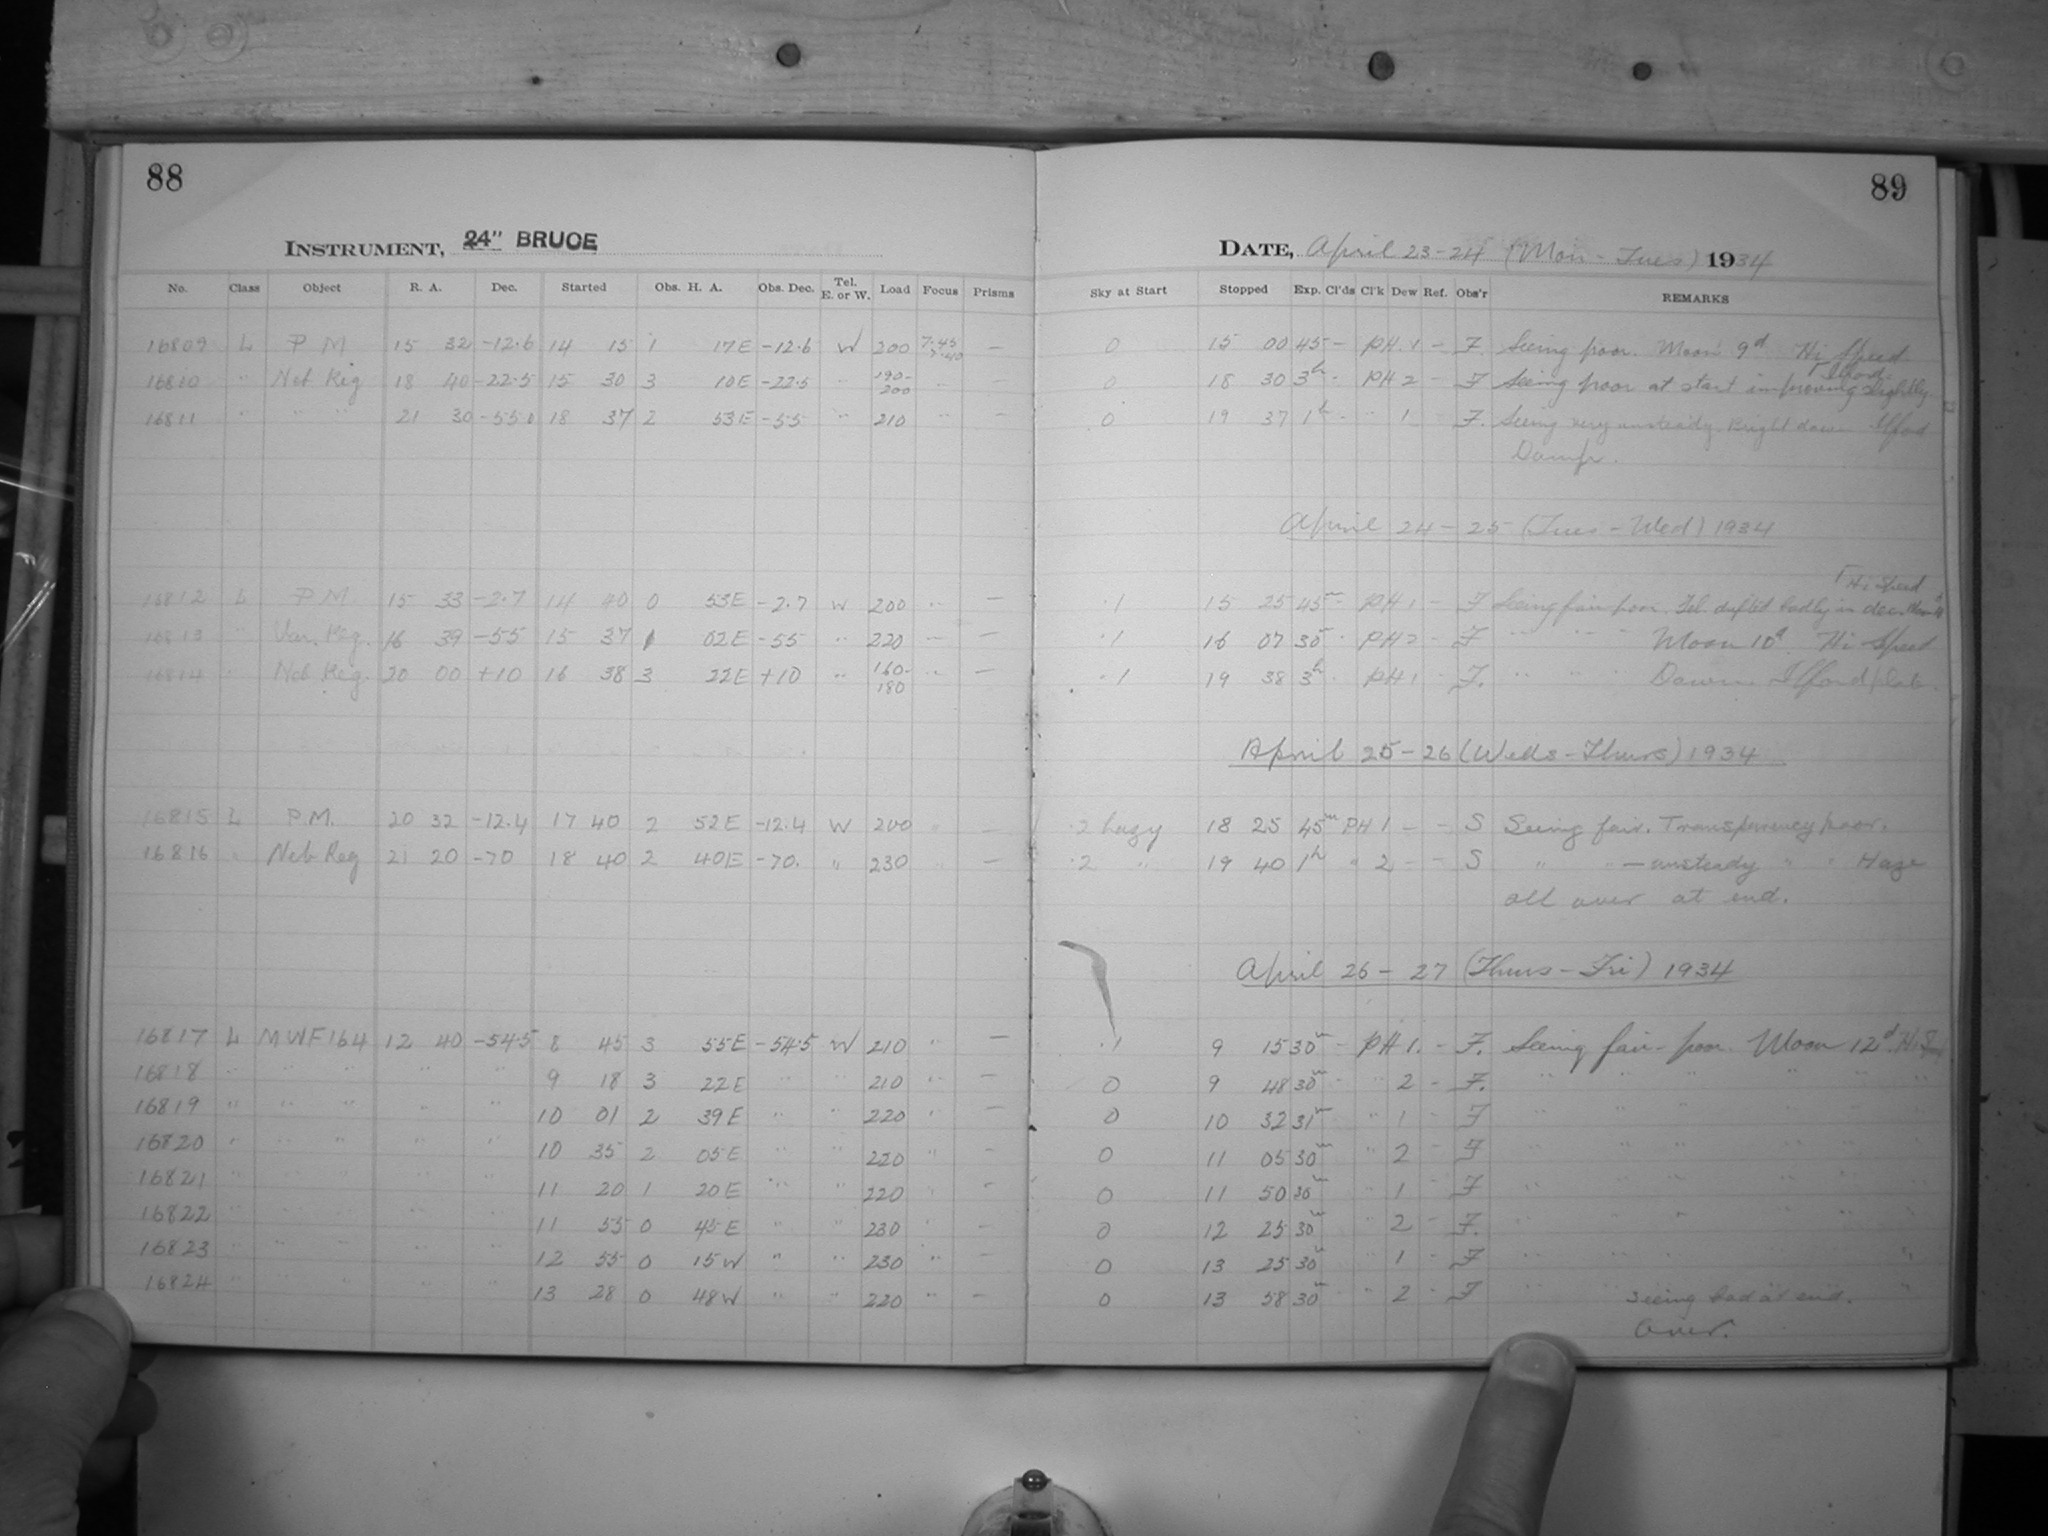 88
INSTRUMENT, 24" BRUCE
No. Class Object R. A. Dec. Started Obs. H. A. Obs. Dec. Tel. E. or W. Load Focus Prisms
16809 L P M 15 32 -12.6 14 15 1 17E -12.6 W 200 7.45 –
16810 " Neb Reg 18 40 -22.5 15 30 3 10E -22.5 " 190-200 " –
16811 " " " 21 30 -55 18 37 2 53E -55 " 210 " –
16812 L P.M. 15 33 -2.7 14 40 0 53E -2.7 W 200 " –
16813 " Var. Reg. 16 39 -55 15 37 1 02E -55 " 220 " –
16814 " Neb Reg. 20 00 +10 16 38 3 22E +10 " 160-180 " –
16815 L P.M. 20 32 -12.4 17 40 2 52E -12.4 W 200 " –
16816 " Neb Reg 21 20 -70 18 40 2 40E -70. " 230 " –
16817 L MWF164 12 40 -54.5 8 45 3 55E -54.5 W 210 " –
16818 " " " " " 9 18 3 22E " " 210 " –
16819 " " " " " 10 01 2 39E " " 220 " –
16820 " " " " " 10 35 2 05E " " 220 " –
16821 " " " " " 11 20 1 20E " " 220 " –
16822 " " " " " 11 55 0 45E " " 230 " –
16823 " " " " " 12 55 0 15W " " 230 " –
16824 " " " " " 13 28 0 48W " " 220 " –
89
DATE, April 23-24 (Mon - Tues) 1934
Sky at Start Stopped Exp. Cl'ds Cl'k Dew Ref. Obs'r REMARKS
0 15 00 45 – PH 1 – F. Seeing poor. Moon 9d Hi Speed
Ilford.
0 18 30 3h – PH 2 – F Seeing poor at start improving slightly
0 19 37 1h – " 1 F. Seeing very unsteady. Bright dawn Ilford
Damp.
April 24 – 25 (Tues – Wed) 1934
Hi Speed
.1 15 25 45m – PH 1 – F Seeing fair poor. Tel. drifted badly in dec.
.1 16 07 30m – PH 2 – F " " " Moon 10d. Hi Speed
.1 19 38 3h – PH 1 – F. " " " Dawn. Ilford plate.
April 25 – 26 (Weds – Thurs) 1934
.2 hazy 18 25 45m PH 1 – – S Seeing fair. Transparency poor.
.2 " 19 40 1h " 2 – – S " " – unsteady " " Haze
all over at end.
April 26 – 27 (Thurs – Fri) 1934
.1 9 15 30m – PH 1. – F. Seeing fair – poor. Moon 12d.
0 9 48 30m – " 2 – F. " " " " " "
0 10 32 31m " 1 – F " " " " "
0 11 05 30m " 2 – F " " " " "
0 11 50 30m " 1 – F " " " " "
0 12 25 30m " 2 – F. " " " " "
0 13 25 30m " 1 – F " " " " "
0 13 58 30m " 2 – F " " Seeing bad at end. "
Over.